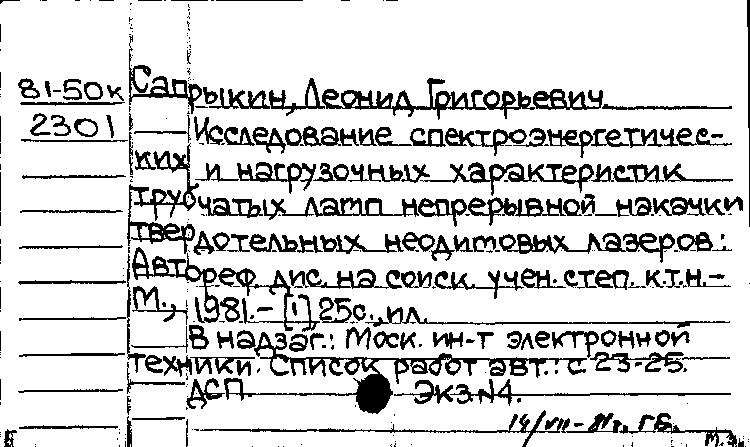 81-50к Сапрыкин, Леонид Григорьевич.
2301 Исследование спектроэнергетичес-
ких и нагрузочных характеристик
трубчатых ламп непрерывной накачки
твердотельных неодимовых лазеров:
Автореф. дис. на соиск. учен. степ. к.т.н.-
М., 1981.- [1], 25с., ил.
В надзаг.: Моск. ин-т электронной
техники. Список работ авт.: с. 23-25.
ДСП. Экз.№4.
14/VII-81г. ГБ.
М.З.